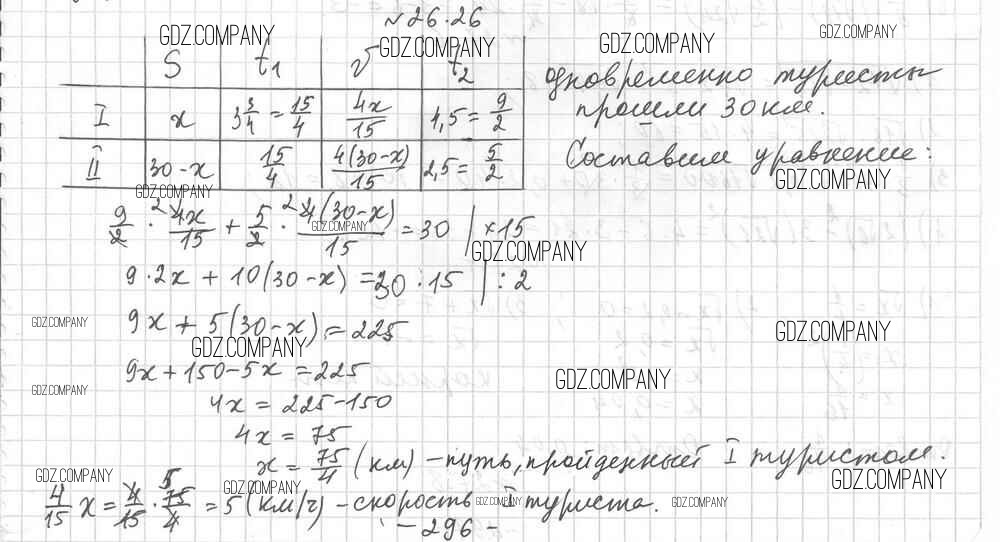 №26.26
GDZ.COMPANY
GDZ.COMPANY
GDZ.COMPANY
GDZ.COMPANY
S t₁ v t₂
одновременно туристы
прошли 30 км.
I x 3 3/4 = 15/4 4x/15 4,5 = 9/2
II 30-x 15/4 4(30-x)/15 2,5 = 5/2
Составим уравнение:
GDZ.COMPANY
GDZ.COMPANY
9/2 · ²4x/15 + 5/2 · ²4(30-x)/15 = 30 | ×15
GDZ.COMPANY
GDZ.COMPANY
9·2x + 10(30-x) = 30·15 | :2
GDZ.COMPANY
9x + 5(30-x) = 225
GDZ.COMPANY
GDZ.COMPANY
9x+150-5x = 225
GDZ.COMPANY
GDZ.COMPANY
4x = 225-150
4x = 75
x = 75/4 (км) - путь, пройденный I туристом.
GDZ.COMPANY
GDZ.COMPANY
GDZ.COMPANY
4/15 x = 4/15 · 75/4 5 = 5 (км/ч) - скорость I туриста.
GDZ.COMPANY
GDZ.COMPANY
- 296 -